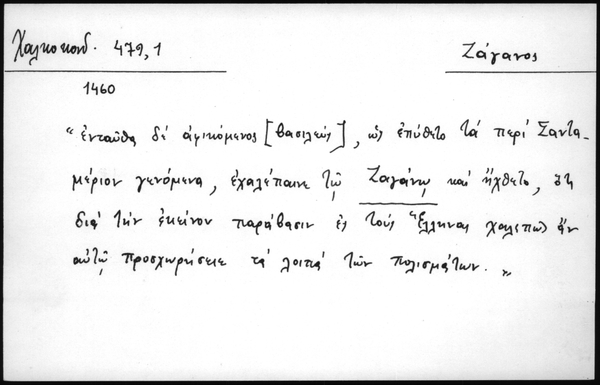 Χαλκοκονδ. 479,1
Ζάγανος
1460
“ἐνταῦθα δέ ἀφικόμενος [βασιλεύς], ὡς ἐπύθετο τά περί Σαντα-
μέριον γενόμενα, ἐχαλέπαινε τῷ Ζαγάνῳ καί ἤχθετο, ὅτι
διά τήν ἐκείνου παράβασιν ἐς τούς Ἕλληνας χαλεπῶς ἄν
αὐτῷ προσχωρήσειε τά λοιπά τῶν πολισμάτων.„